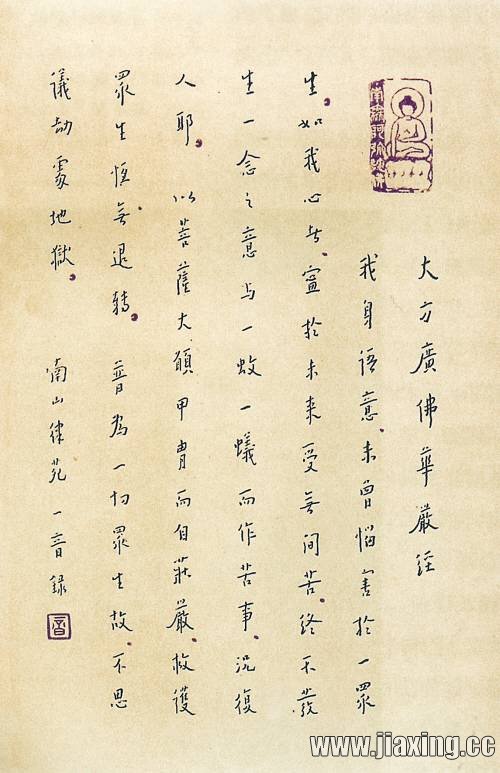 大方廣佛華嚴經
我身語意未曾惱害於一眾
生。如我心者。寧於未來受無間苦。終不發
生一念之意與一蚊一蟻而作苦事。況復
人耶。以菩薩大願甲冑而自莊嚴。救護
眾生恆無退轉。普為一切眾生故。不思
議劫處地獄。
南山律苑一音錄
音
www.jiaxing.cc